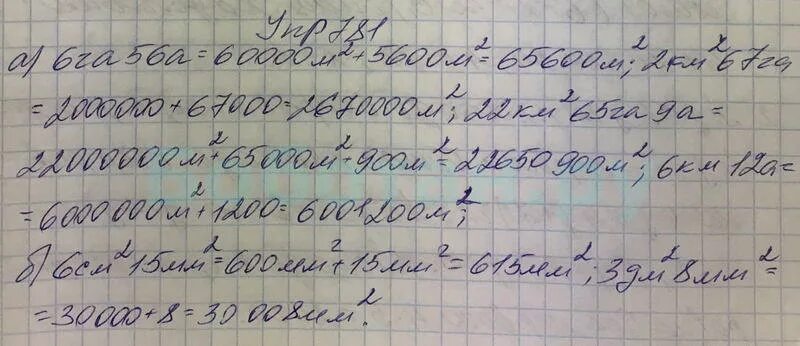 Упр 781
а) 6га 56а = 60000м² + 5600м² = 65600м²; 2км² 67га
= 2000000 + 67000 = 2670000м²; 22км² 65га 9а =
22000000м² + 65000м² + 900м² = 22650900м²; 6км 12а =
= 6000000м² + 1200 = 6001200м²;
б) 6см² 15мм² = 600мм² + 15мм² = 615мм²; 3дм² 8мм² =
= 30000 + 8 = 30 008мм².